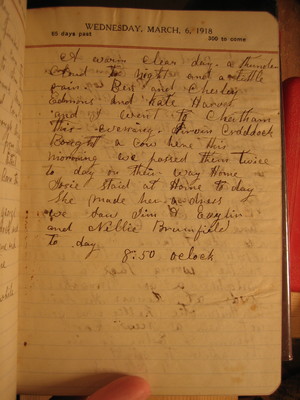 WEDNESDAY, MARCH, 6, 1918
65 days past 300 to come
A warm clear day. a thunder
cloud to night and a little
rain. Ben and Chesley
Edmons and Kate Harvey
and I went to Cheatham
this evening. Irvin Craddock
Bought a cow here this
morning we passed them twice
to day on their way Home
staid at Home to day
She made her a dress
we saw Jim
and Nellie Brumfield
to day
8:50 oclock